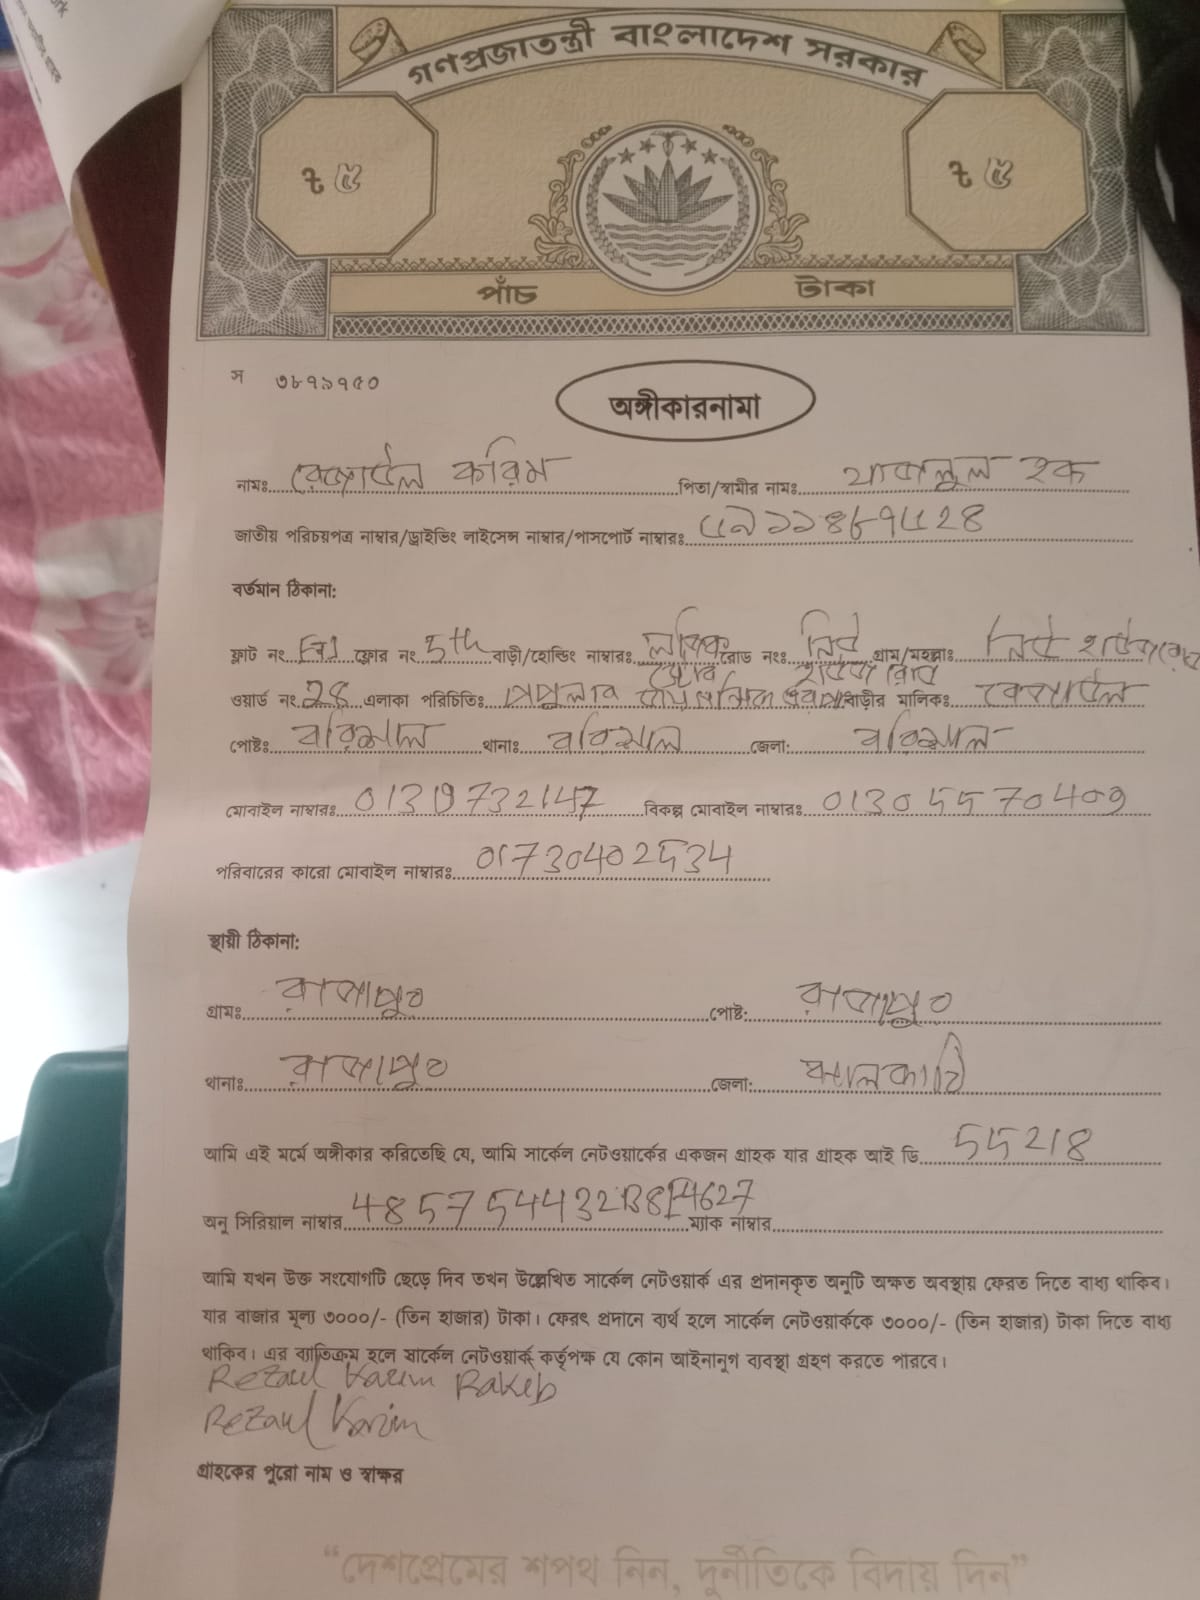 গণপ্রজাতন্ত্রী বাংলাদেশ সরকার
৳ ৫ ৳ ৫
পাঁচ টাকা
স ৩৮৭৯৭৫০
অঙ্গীকারনামা
নামঃ রেজাউল করিম পিতা/স্বামীর নামঃ হক
জাতীয় পরিচয়পত্র নাম্বার/ড্রাইভিং লাইসেন্স নাম্বার/পাসপোর্ট নাম্বারঃ
বর্তমান ঠিকানা:
ফ্লাট নং ফ্লোর নং 5th বাড়ী/হোল্ডিং নাম্বারঃ রোড নংঃ নিউ গ্রাম/মহল্লাঃ নিউ
ওয়ার্ড নং এলাকা পরিচিতিঃ বাড়ীর মালিকঃ রেজাউল
পোষ্টঃ বরিশাল থানাঃ বরিশাল জেলা: বরিশাল
মোবাইল নাম্বারঃ 01319732147 বিকল্প মোবাইল নাম্বারঃ
পরিবারের কারো মোবাইল নাম্বারঃ 01730402534
স্থায়ী ঠিকানা:
গ্রামঃ রাজাপুর পোষ্ট: রাজাপুর
থানাঃ রাজাপুর জেলা: ঝালকাঠি
আমি এই মর্মে অঙ্গীকার করিতেছি যে, আমি সার্কেল নেটওয়ার্কের একজন গ্রাহক যার গ্রাহক আই ডি 55218
অনু সিরিয়াল নাম্বার 48575443213BF4627 ম্যাক নাম্বার
আমি যখন উক্ত সংযোগটি ছেড়ে দিব তখন উল্লেখিত সার্কেল নেটওয়ার্ক এর প্রদানকৃত অনুটি অক্ষত অবস্থায় ফেরত দিতে বাধ্য থাকিব।
যার বাজার মূল্য ৩০০০/- (তিন হাজার) টাকা। ফেরৎ প্রদানে ব্যর্থ হলে সার্কেল নেটওয়ার্ককে ৩০০০/- (তিন হাজার) টাকা দিতে বাধ্য
থাকিব। এর ব্যতিক্রম হলে সার্কেল নেটওয়ার্ক কর্তৃপক্ষ যে কোন আইনানুগ ব্যবস্থা গ্রহণ করতে পারবে।
Rezaul Karim Rakib
Rezaul Karim
গ্রাহকের পুরো নাম ও স্বাক্ষর
“দেশপ্রেমের শপথ নিন, দুর্নীতিকে বিদায় দিন”